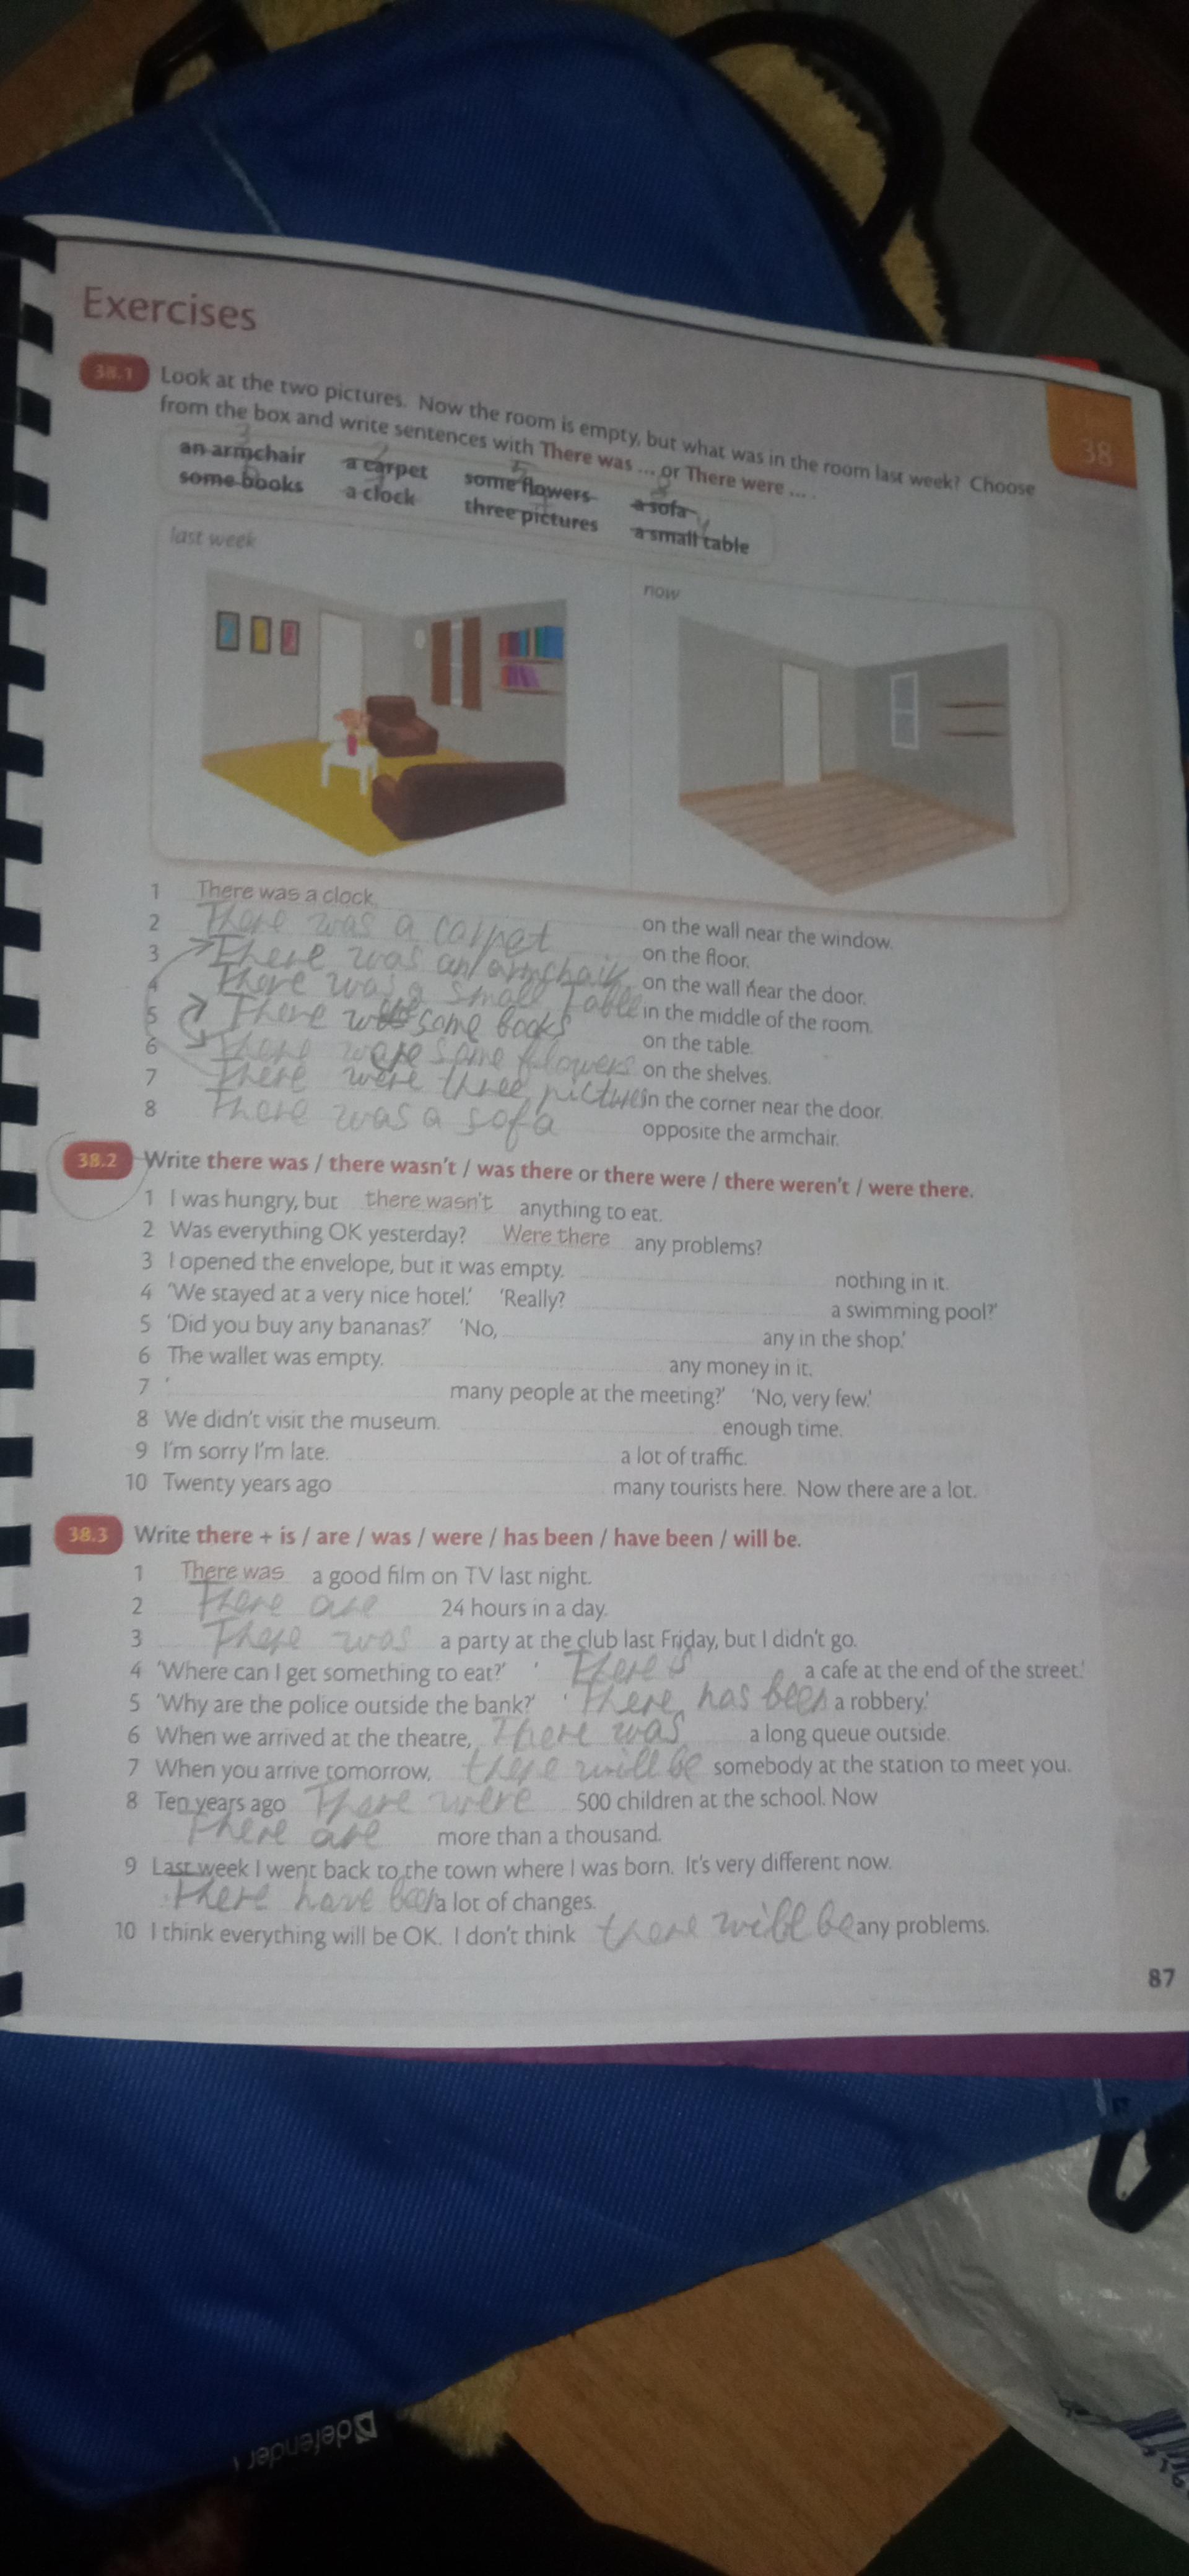 Exercises
38
38.1 Look at the two pictures. Now the room is empty, but what was in the room last week? Choose
from the box and write sentences with There was ... or There were ... .
an armchair a carpet some flowers a sofa
some books a clock three pictures a small table
last week
now
1 There was a clock on the wall near the window.
2 There was a carpet on the floor.
3 There was an armchair on the wall near the door.
4 There was a small table in the middle of the room.
5 There some books on the table.
6 There were some flowers on the shelves.
7 There were three pictures in the corner near the door.
8 There was a sofa opposite the armchair.
38.2 Write there was / there wasn't / was there or there were / there weren't / were there.
1 I was hungry, but there wasn't anything to eat.
2 Was everything OK yesterday? Were there any problems?
3 I opened the envelope, but it was empty. nothing in it.
4 'We stayed at a very nice hotel.' 'Really? a swimming pool?'
5 'Did you buy any bananas?' 'No, any in the shop.'
6 The wallet was empty. any money in it.
7 ' many people at the meeting?' 'No, very few.'
8 We didn't visit the museum. enough time.
9 I'm sorry I'm late. a lot of traffic.
10 Twenty years ago many tourists here. Now there are a lot.
38.3 Write there + is / are / was / were / has been / have been / will be.
1 There was a good film on TV last night.
2 There are 24 hours in a day.
3 There was a party at the club last Friday, but I didn't go.
4 'Where can I get something to eat?' 'There is a cafe at the end of the street.'
5 'Why are the police outside the bank?' 'There has been a robbery.'
6 When we arrived at the theatre, There was a long queue outside.
7 When you arrive tomorrow, there will be somebody at the station to meet you.
8 Ten years ago There were 500 children at the school. Now
There are more than a thousand.
9 Last week I went back to the town where I was born. It's very different now.
There have been a lot of changes.
10 I think everything will be OK. I don't think there will be any problems.
87
defender